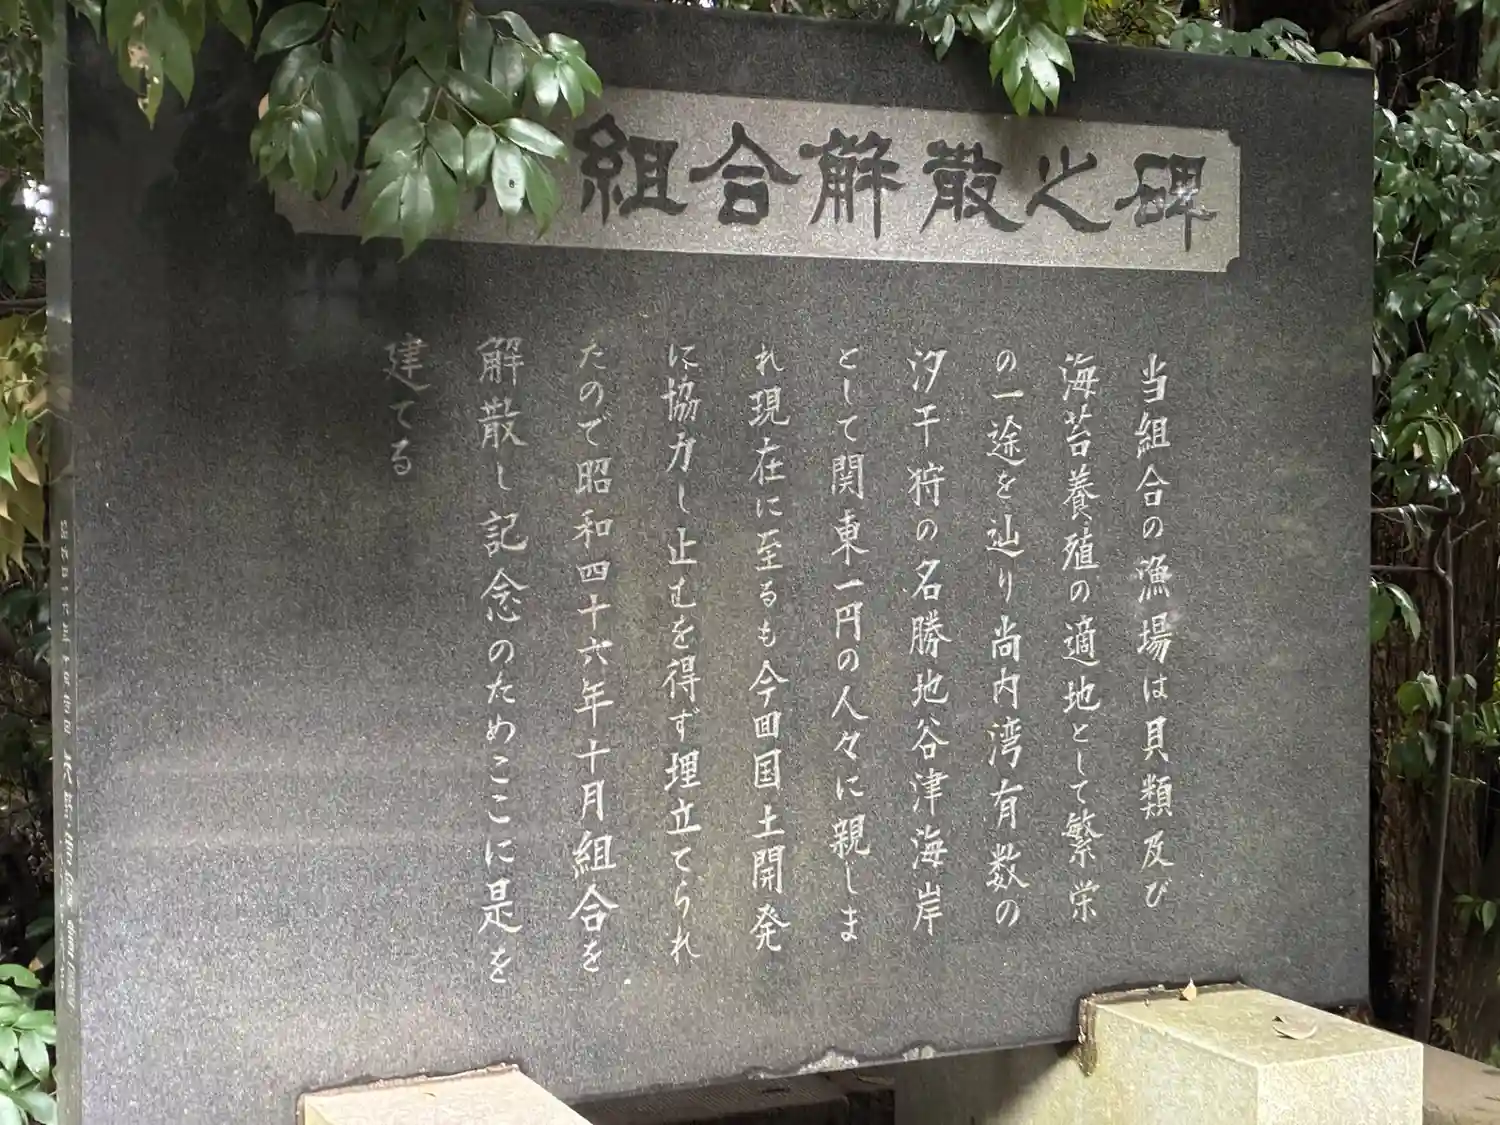 組合解散之碑
当組合の漁場は貝類及び
海苔養殖の適地として繁栄
の一途を辿り尚内湾有数の
汐干狩の名勝地谷津海岸
として関東一円の人々に親しま
れ現在に至るも今回国土開発
に協力し止むを得ず埋立てられ
たので昭和四十六年十月組合を
解散し記念のためここに是を
建てる